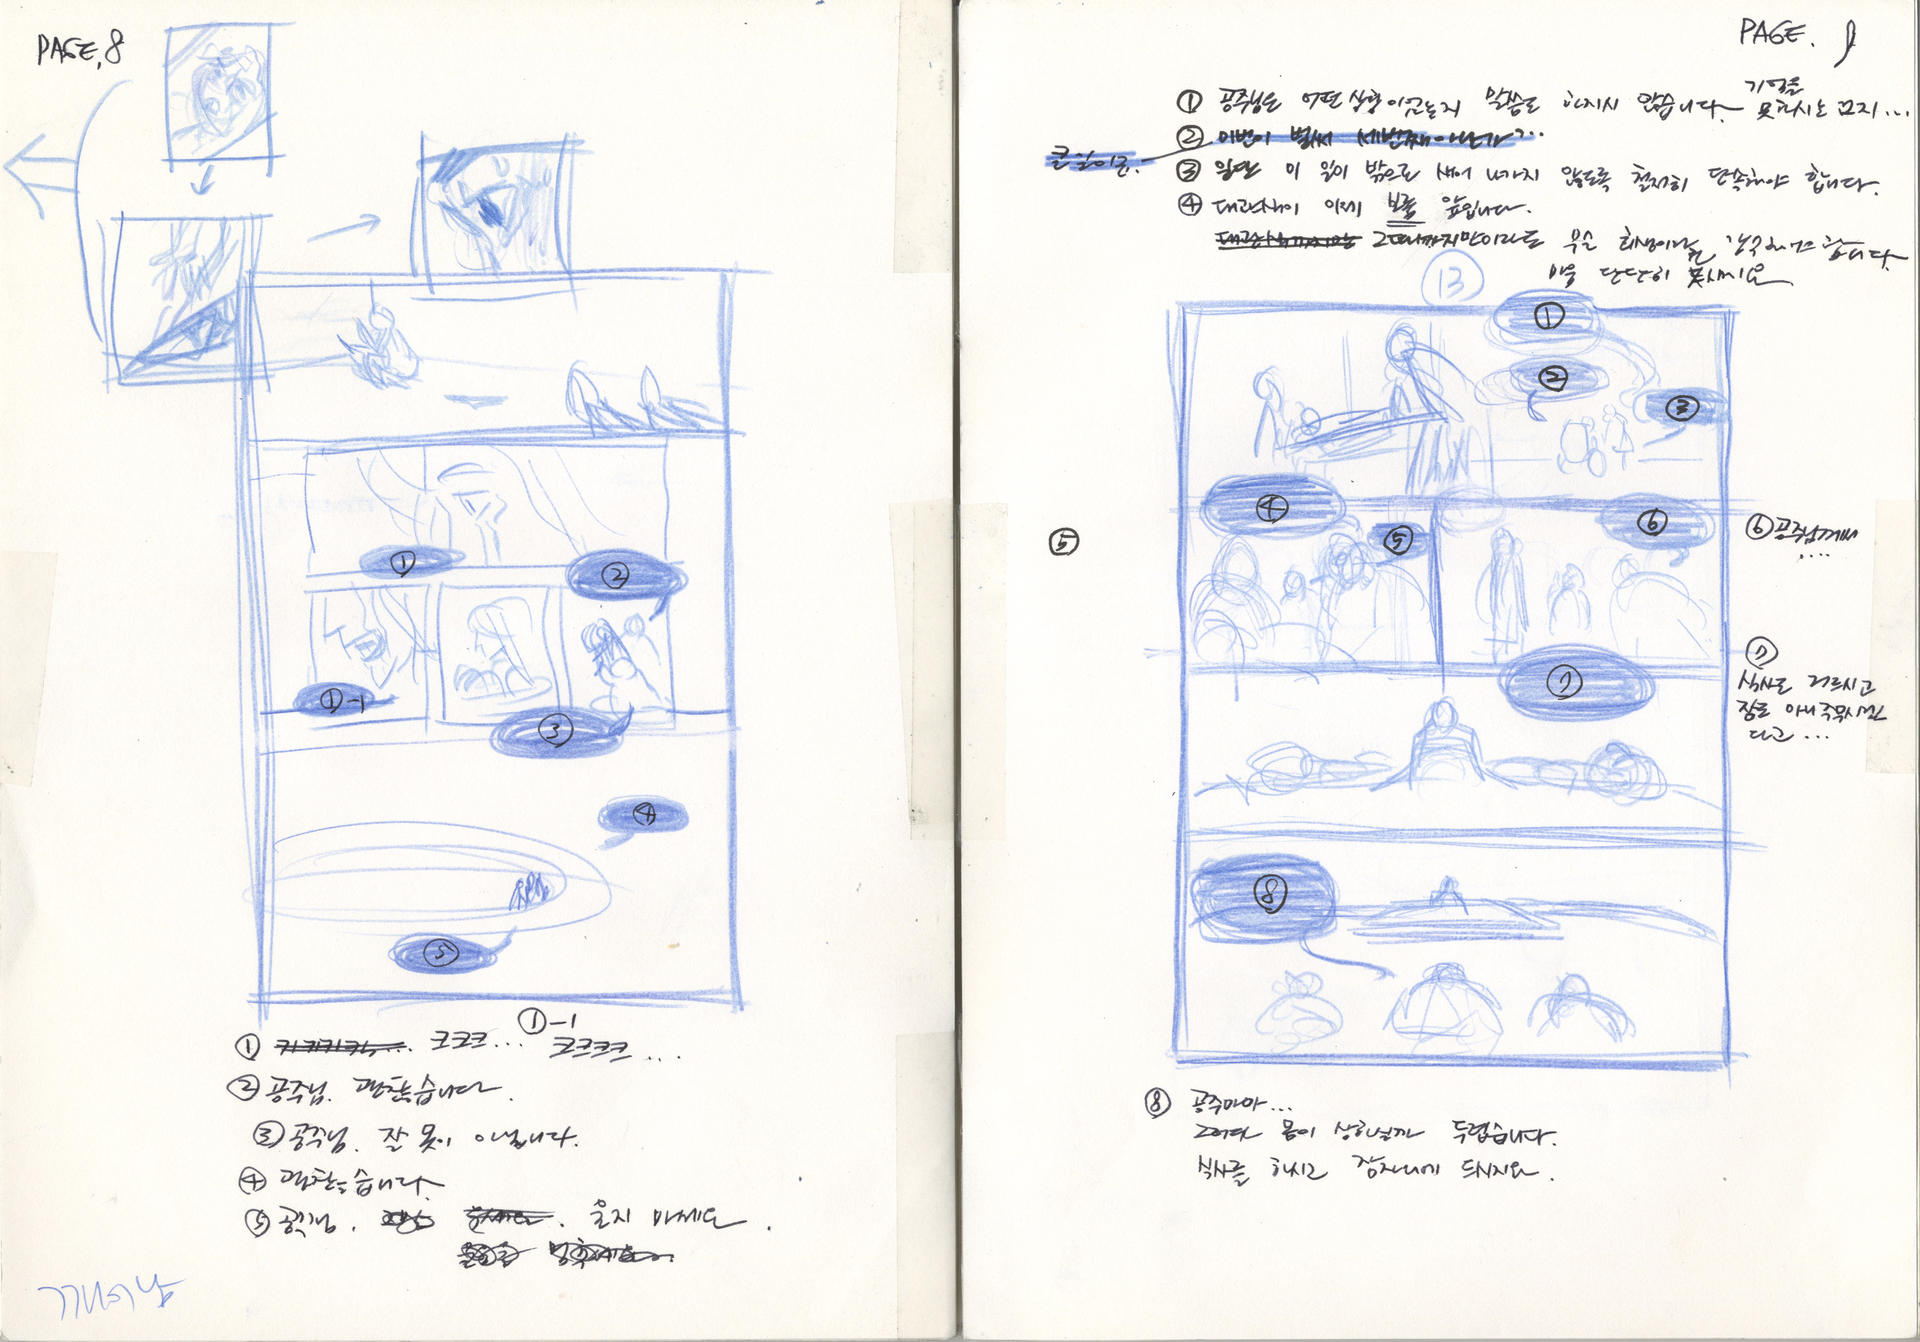 PAGE, 8
①
②
①-1
③
④
⑤
①-1
① 크크크... 크크크크...
② 공주님. 괜찮습니다.
③ 공주님. 잘못이 아닙니다.
④ 괜찮습니다.
⑤ 공주님. 울지 마세요.
PAGE. 9
기억을
① 공주님은 어떤 상황이었는지 말씀도 하지시 않습니다. 못하시는 묘지...
② 이번이 벌써 세번째 아닌가?..
큰일이군.
③ 일단 이 일이 밖으로 새어 나가지 않도록 철저히 단속해야 합니다.
④ 대관식이 이제 보름 앞입니다.
그때까지만이라도 무슨 희생이라도 합니다.
마음 단단히 잡으세요.
13
①
②
③
④
⑤
⑥
⑤
⑥ 공주님께서
....
⑦
⑦
식사도 거르시고
잠도 아니 주무시신
다고...
⑧
⑧ 공주마마...
그러다 몸이 상하실까 두렵습니다.
식사를 하시고 잠자리에 드시지요.